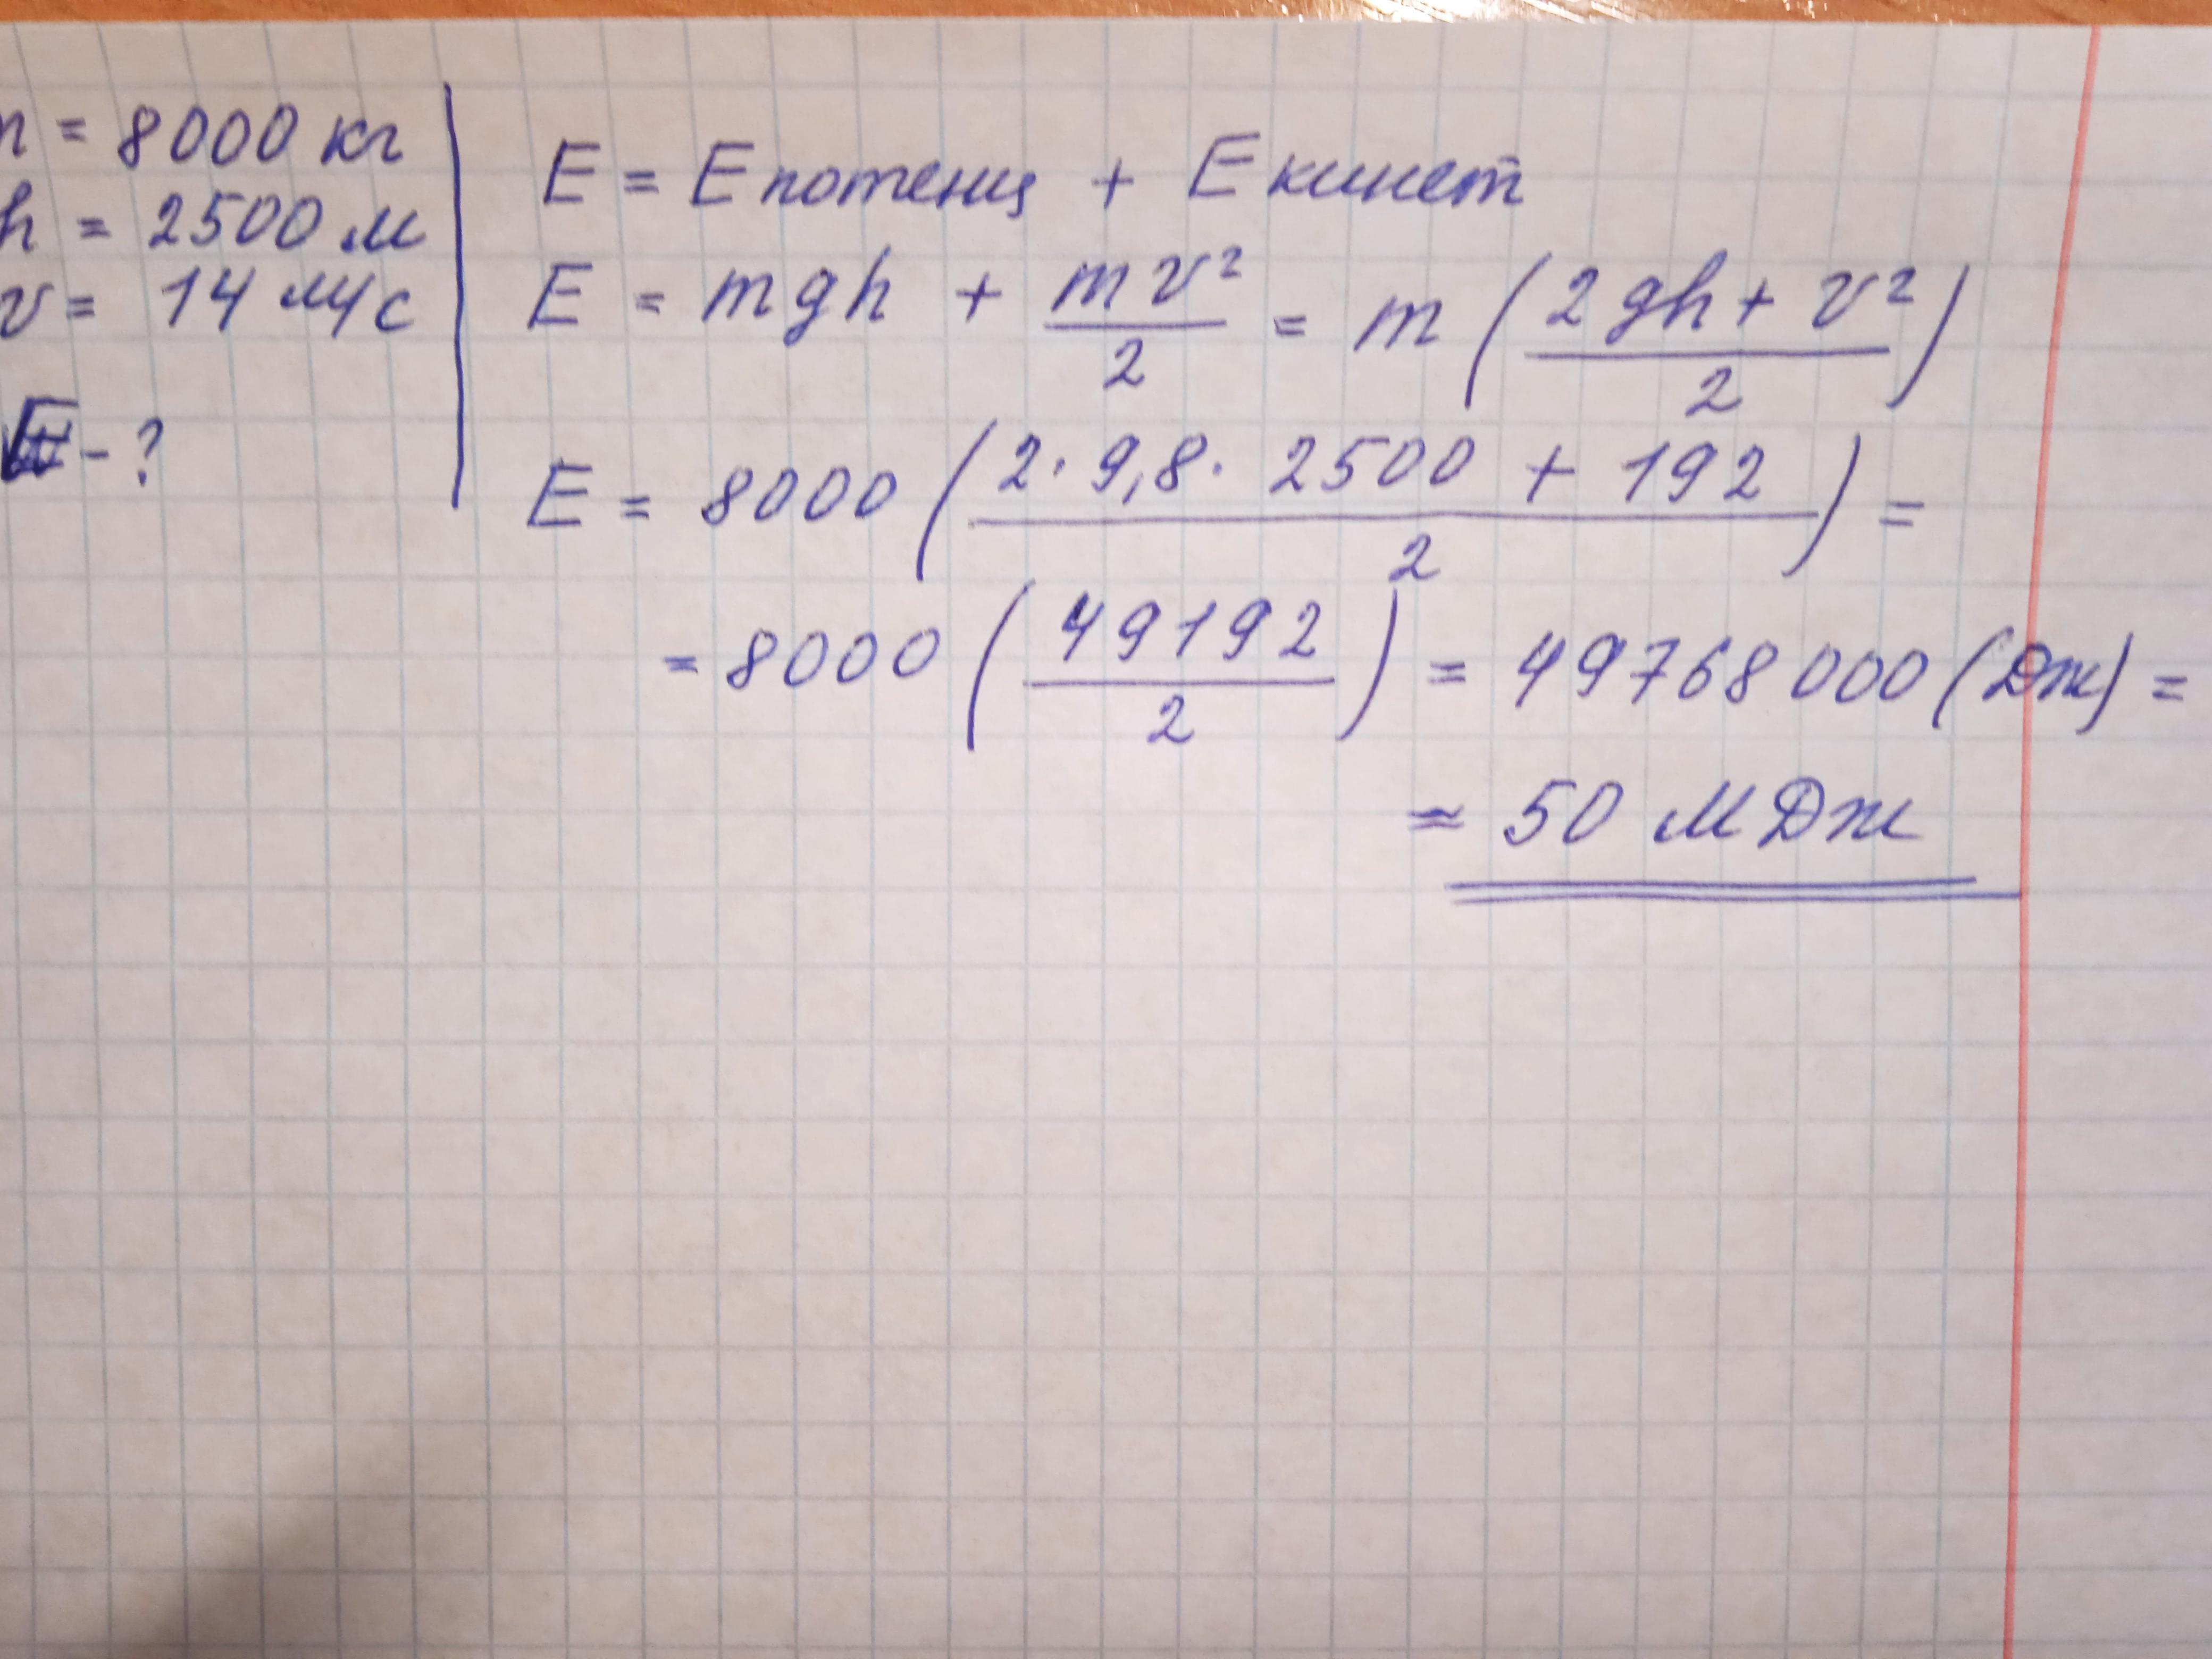 m = 8000 кг
h = 2500 м
v = 14 м/с
E - ?
E = E потенц + E кинет
E = mgh + mv²/2 = m (2gh + v²/2)
E = 8000 (2 · 9,8 · 2500 + 192/2) =
= 8000 (49192/2) = 49768000 (Дж) =
≈ 50 МДж